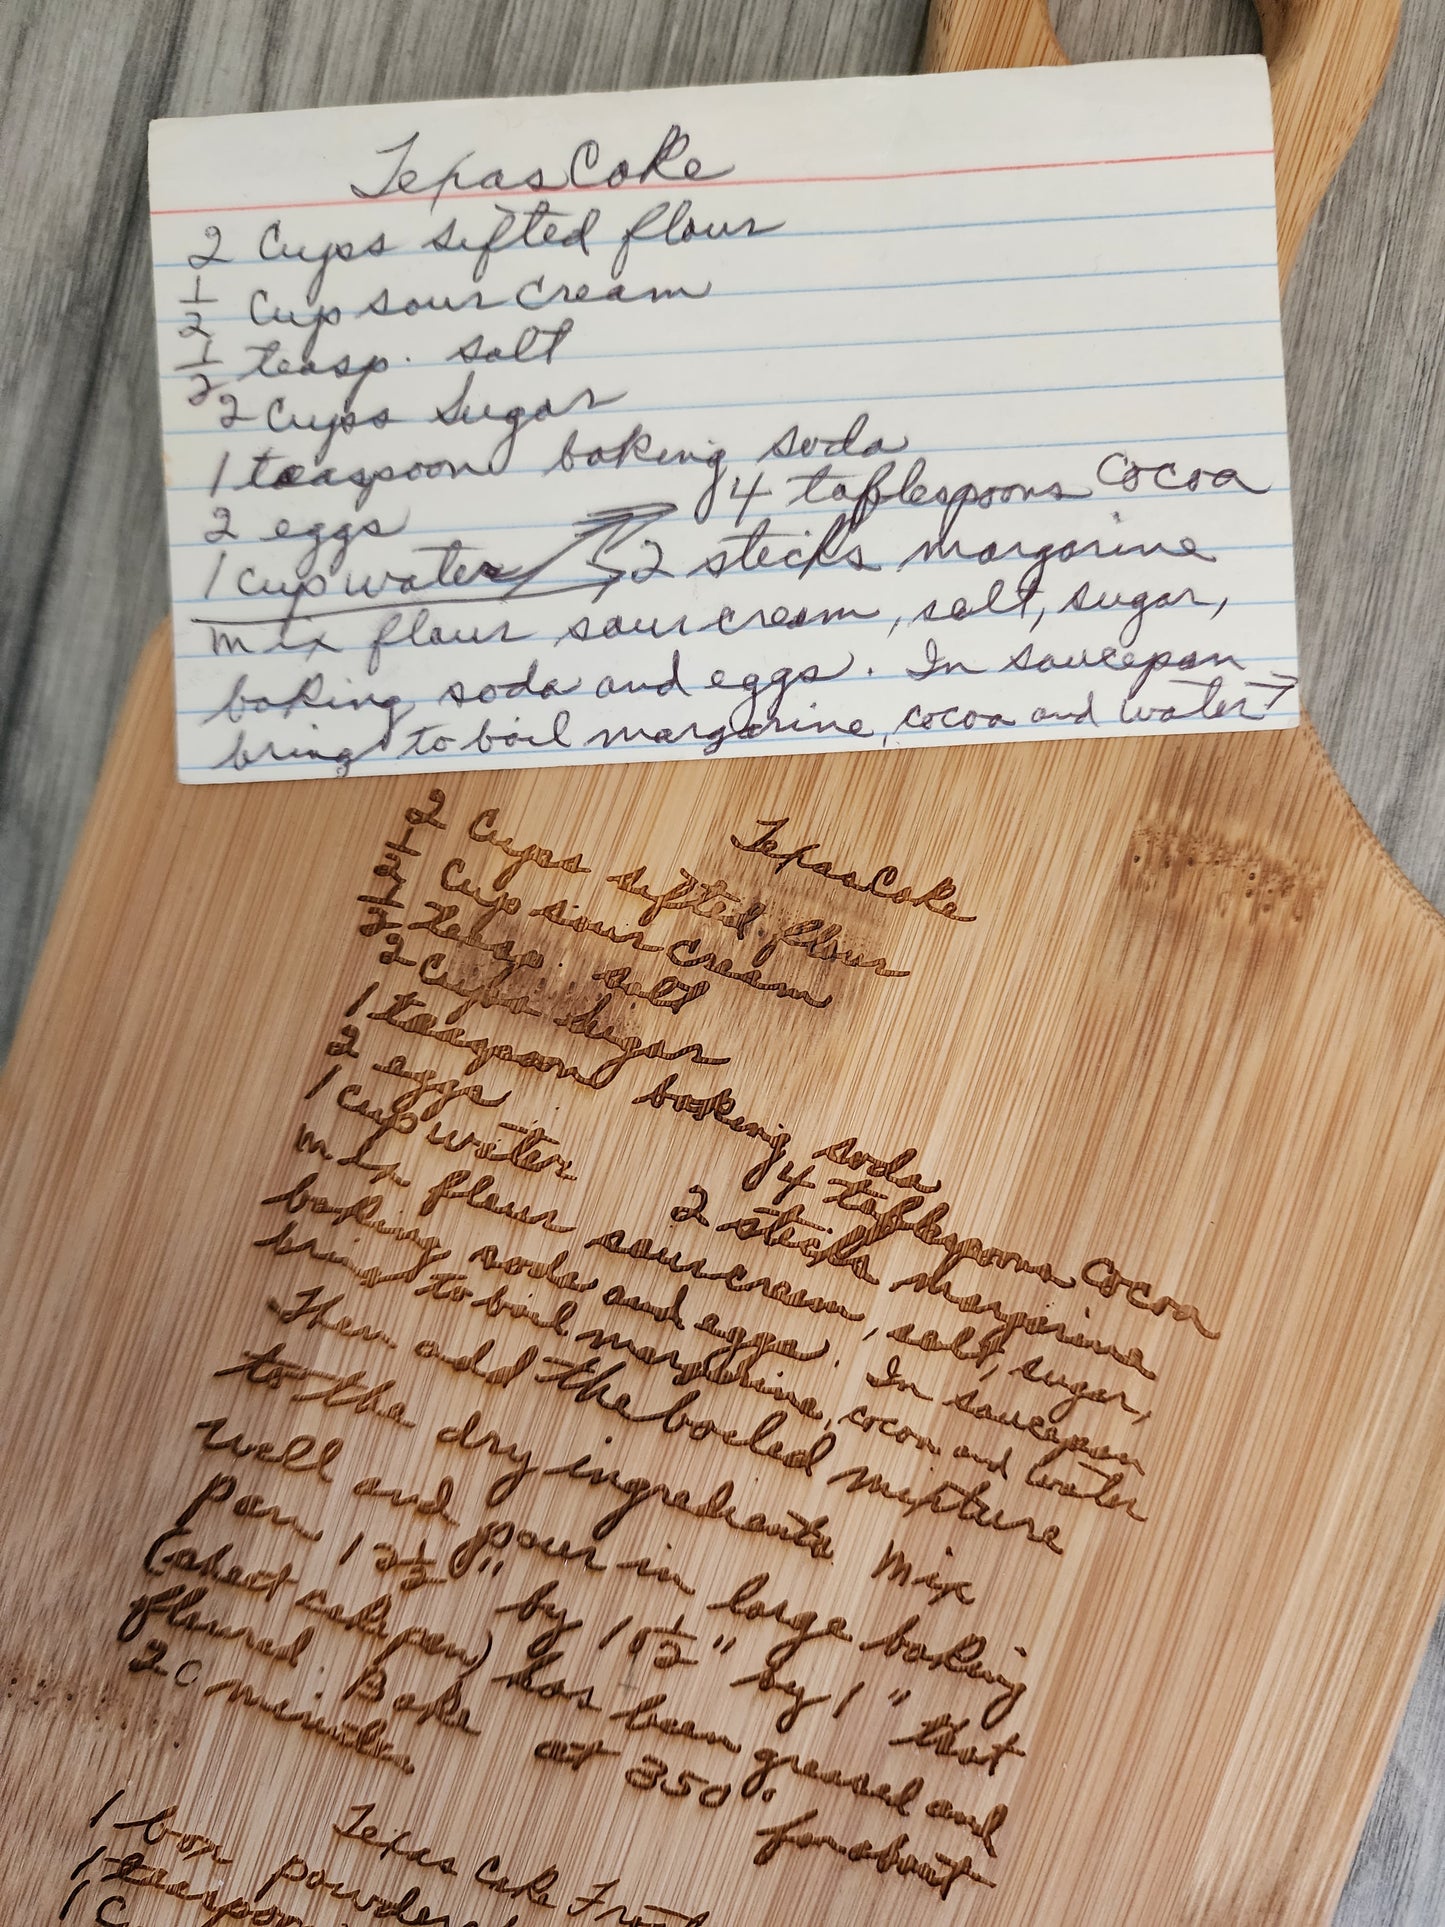 Texas Cake
2 Cups sifted flour
1/2 Cup sour cream
1/2 teasp. salt
2 Cups Sugar
1 teaspoon baking soda
4 tablespoons cocoa
2 eggs
1 cup water
2 sticks margarine
mix flour sour cream, salt, sugar,
baking soda and eggs. In saucepan
bring to boil margarine, cocoa and water →
Texas Cake
2 Cups sifted flour
1/2 Cup sour cream
1/2 teasp. salt
2 Cups Sugar
1 teaspoon baking soda
2 eggs
4 tablespoons cocoa
1 cup water
2 sticks margarine
mix flour sour cream, salt, sugar,
baking soda and eggs. In saucepan
bring to boil margarine, cocoa and water
Then add the boiled mixture
to the dry ingredients. Mix
well and pour in large baking
pan 12 1/2" by 1 1/2" by 1" that
(sheet cake pan) has been greased and
floured. Bake at 350° for about
20 minutes
Texas Cake
1 box
1
1